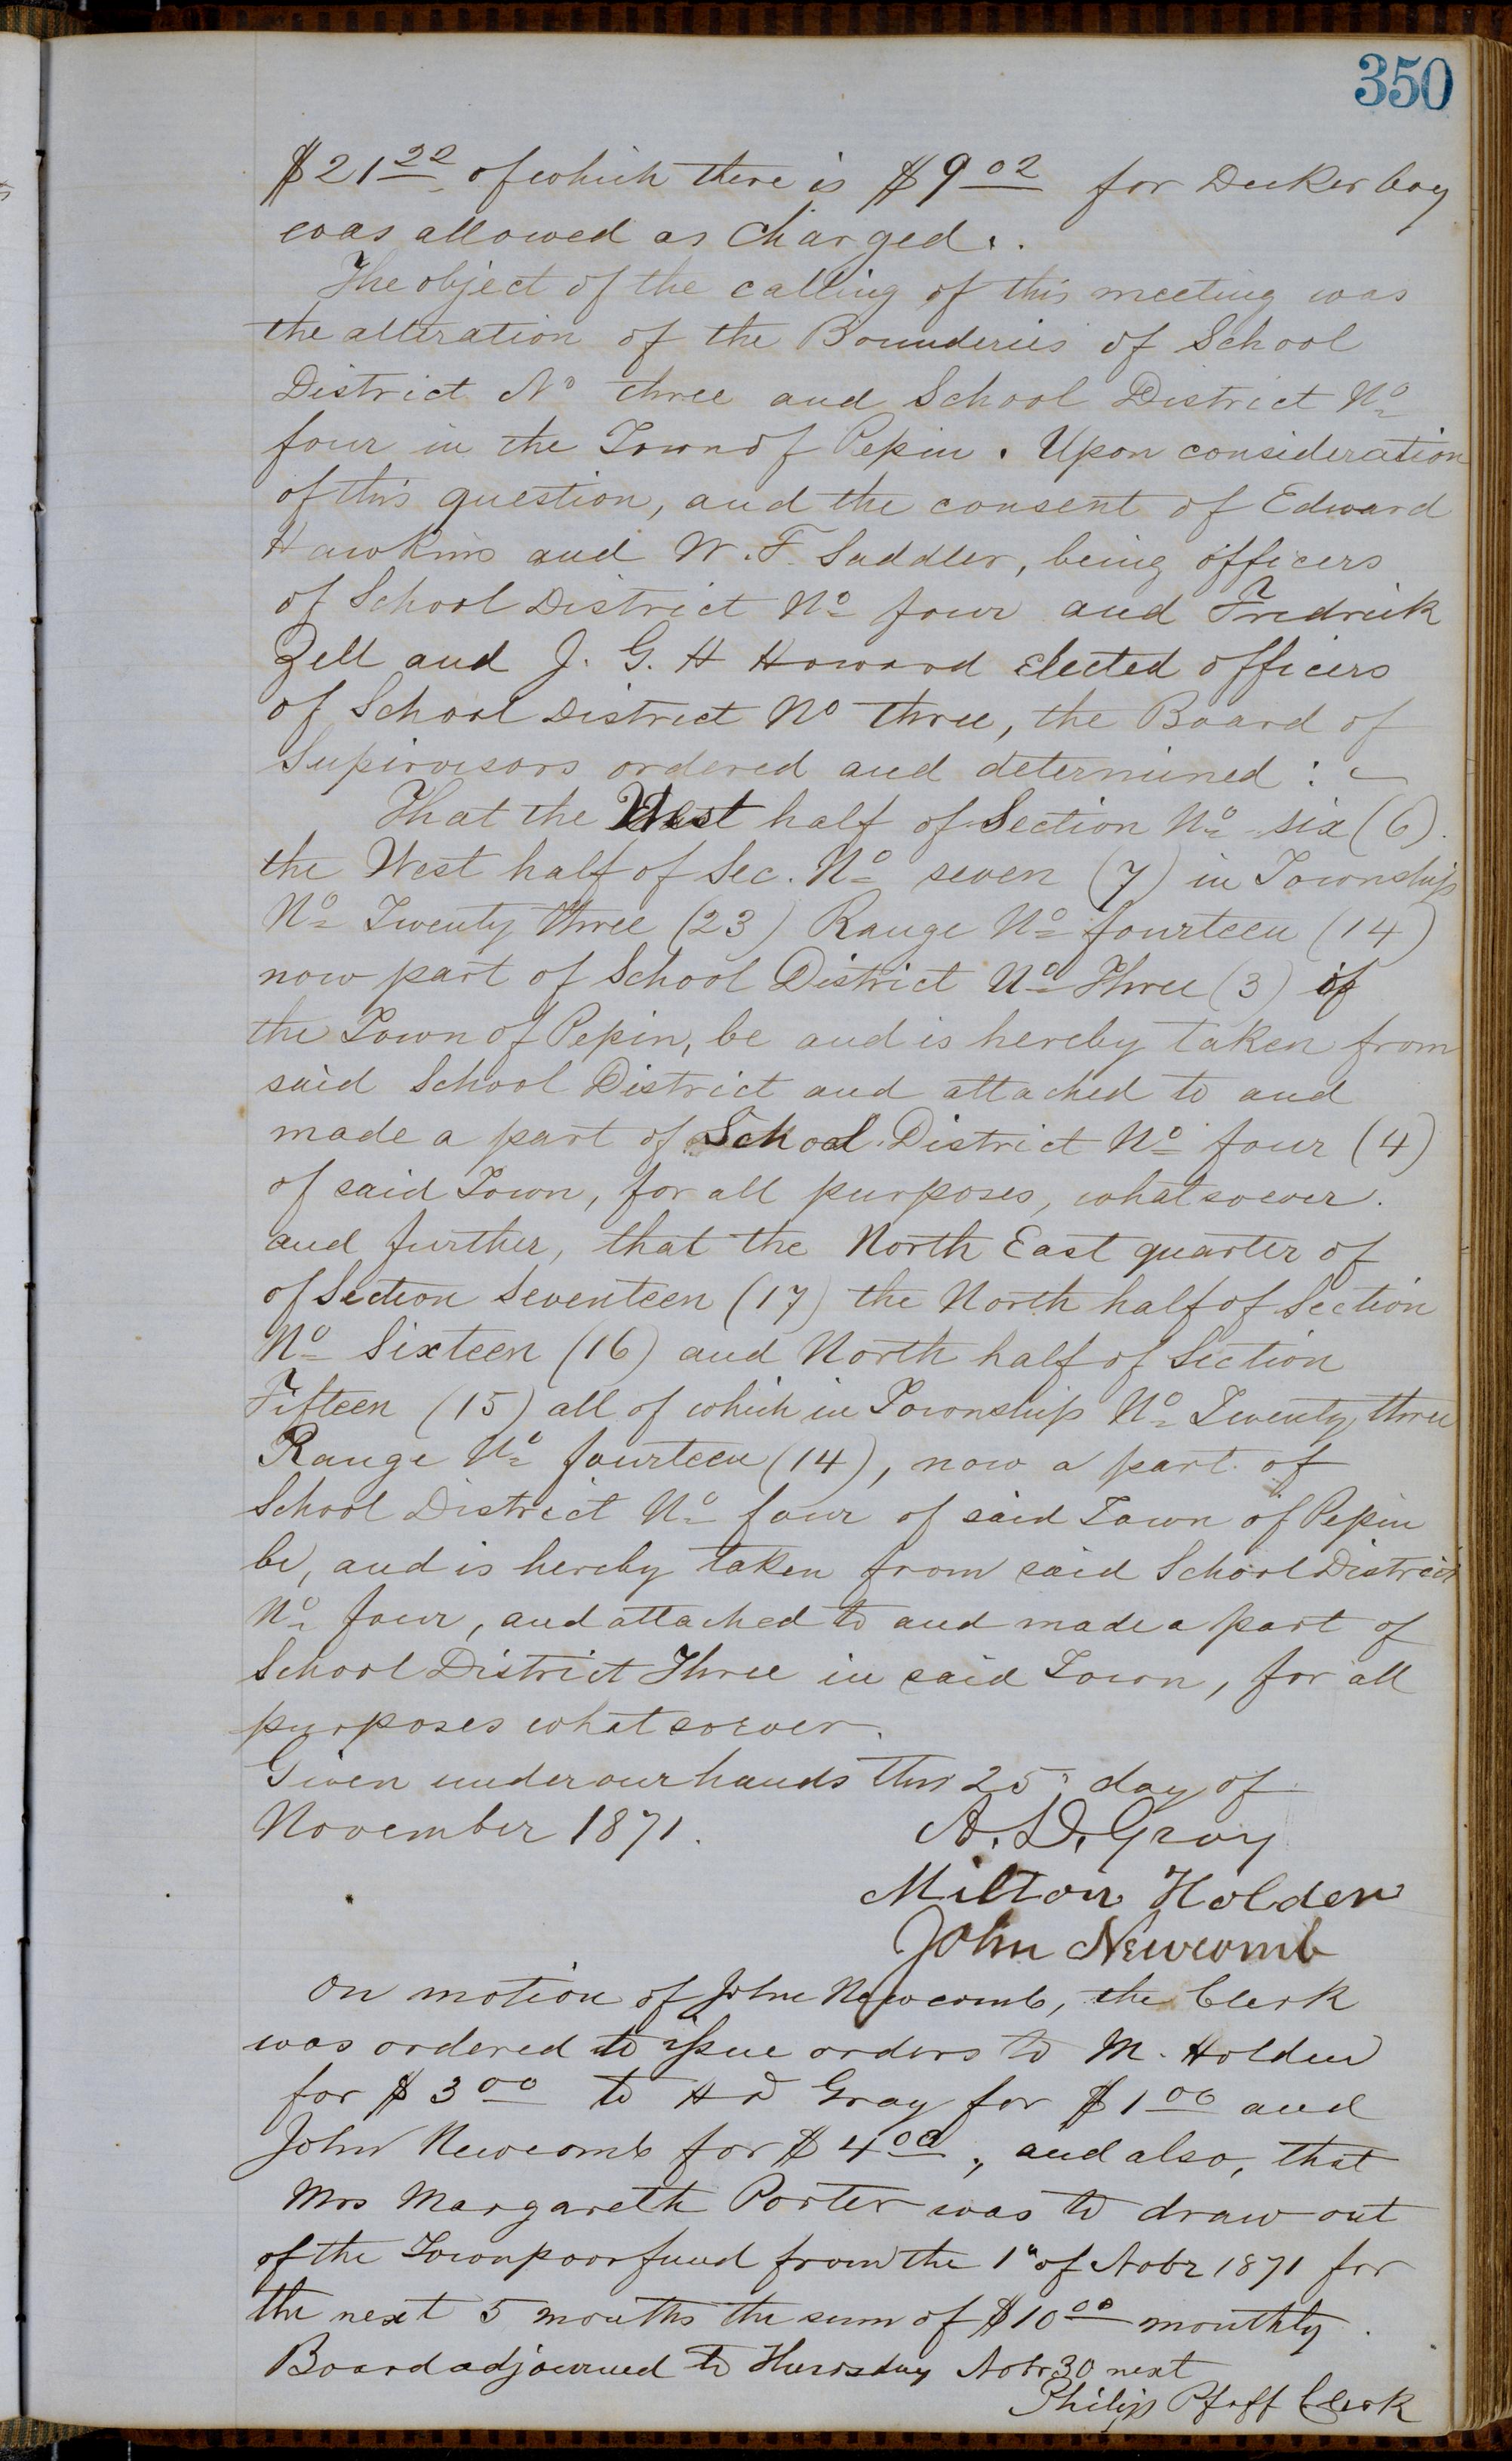 350
$21 22 of which there is $9 02 for Decker boy
was allowed as charged.
The object of the calling of this meeting was
the alteration of the Bounderies of School
District No three and School District No
four in the Town of Pepin. Upon consideration
of this question, and the consent of Edward
Hawkins and W. F. Saddler, being officers
of School District No four and Fredrick
Zell and J. G. H Howard elected officers
of School District No three, the Board of
Supirvisors ordered and determined :
That the West half of Section No six (6).
the West half of Sec. No seven (7) in Township
No Twenty three (23) Range No fourteen (14)
now part of School District No Three (3) of
the Town of Pepin, be and is hereby taken from
said School District and attached to and
made a part of School District No four (4)
of said Town, for all purposes, whatsoever.
and further, that the North East quarter of
of Section Seventeen (17) the North half of Section
No Sixteen (16) and North half of Section
Fifteen (15) all of which in Township No Twenty three
Range No fourteen (14), now a part of
School District No four of said Town of Pepin
be, and is hereby taken from said School District
No four, and attached to and made a part of
School District Three in said Town, for all
purposes whatsoever.
Given under our hands this 25 day of
November 1871.
A. D. Gray
Milton Holden
John Newcomb
On motion of John Newcomb, the Clerk
was ordered to issue orders to M. Holden
for $3 00 to A D Gray for $1 00 and
John Newcomb for $4 00, and also, that
Mrs Margareth Porter was to draw out
of the Town poor fund from the 1" of Nobr 1871 for
the next 5 months the sum of $10 00 monthly.
Board adjourned to Thursday Nobr 30 next
Philip Pfaff Clerk